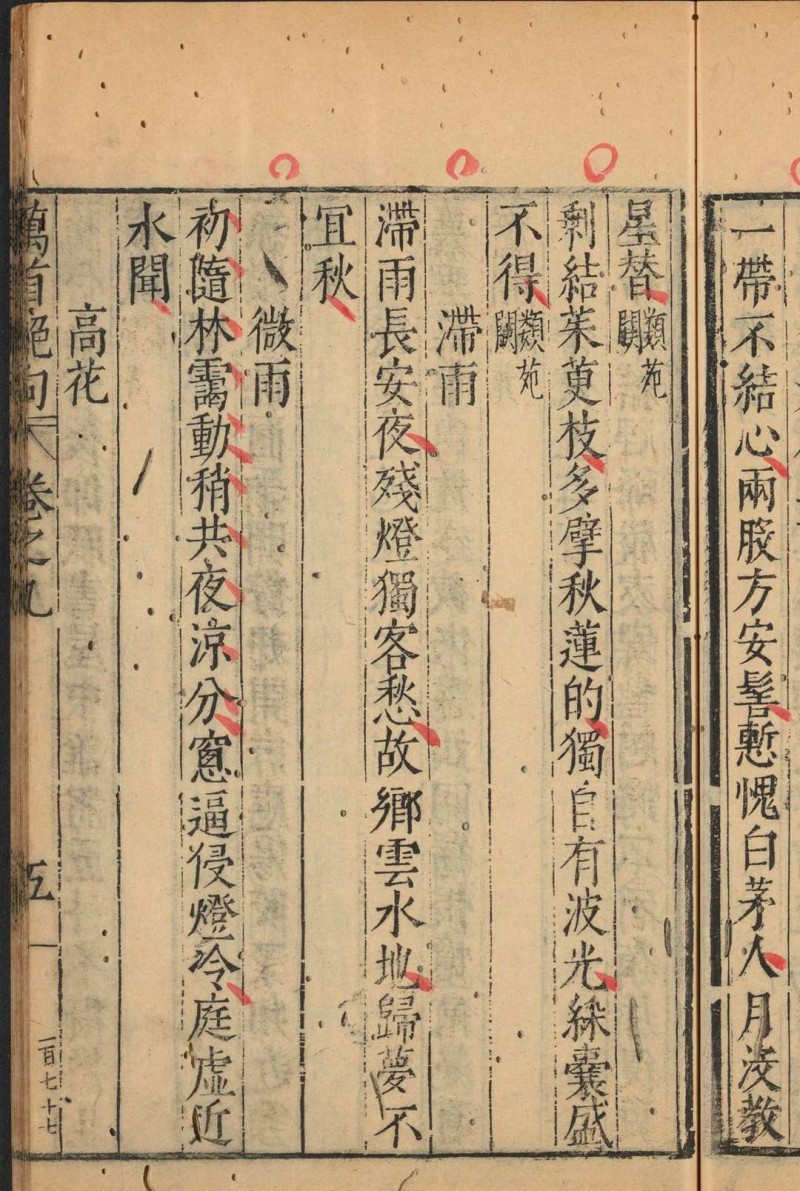 一帶不結心兩股方安髻慙愧白茅人月沒教
星替類苑闕
剩結茱萸枝多擘秋蓮的獨自有波光綵囊盛
不得類苑闕
滯雨
滯雨長安夜殘燈獨客愁故鄉雲水地歸夢不
宜秋
微雨
初隨林靄動稍共夜涼分窻逼侵燈冷庭虛近
水聞
高花
萬首絕句 卷之九 五
一百七十七